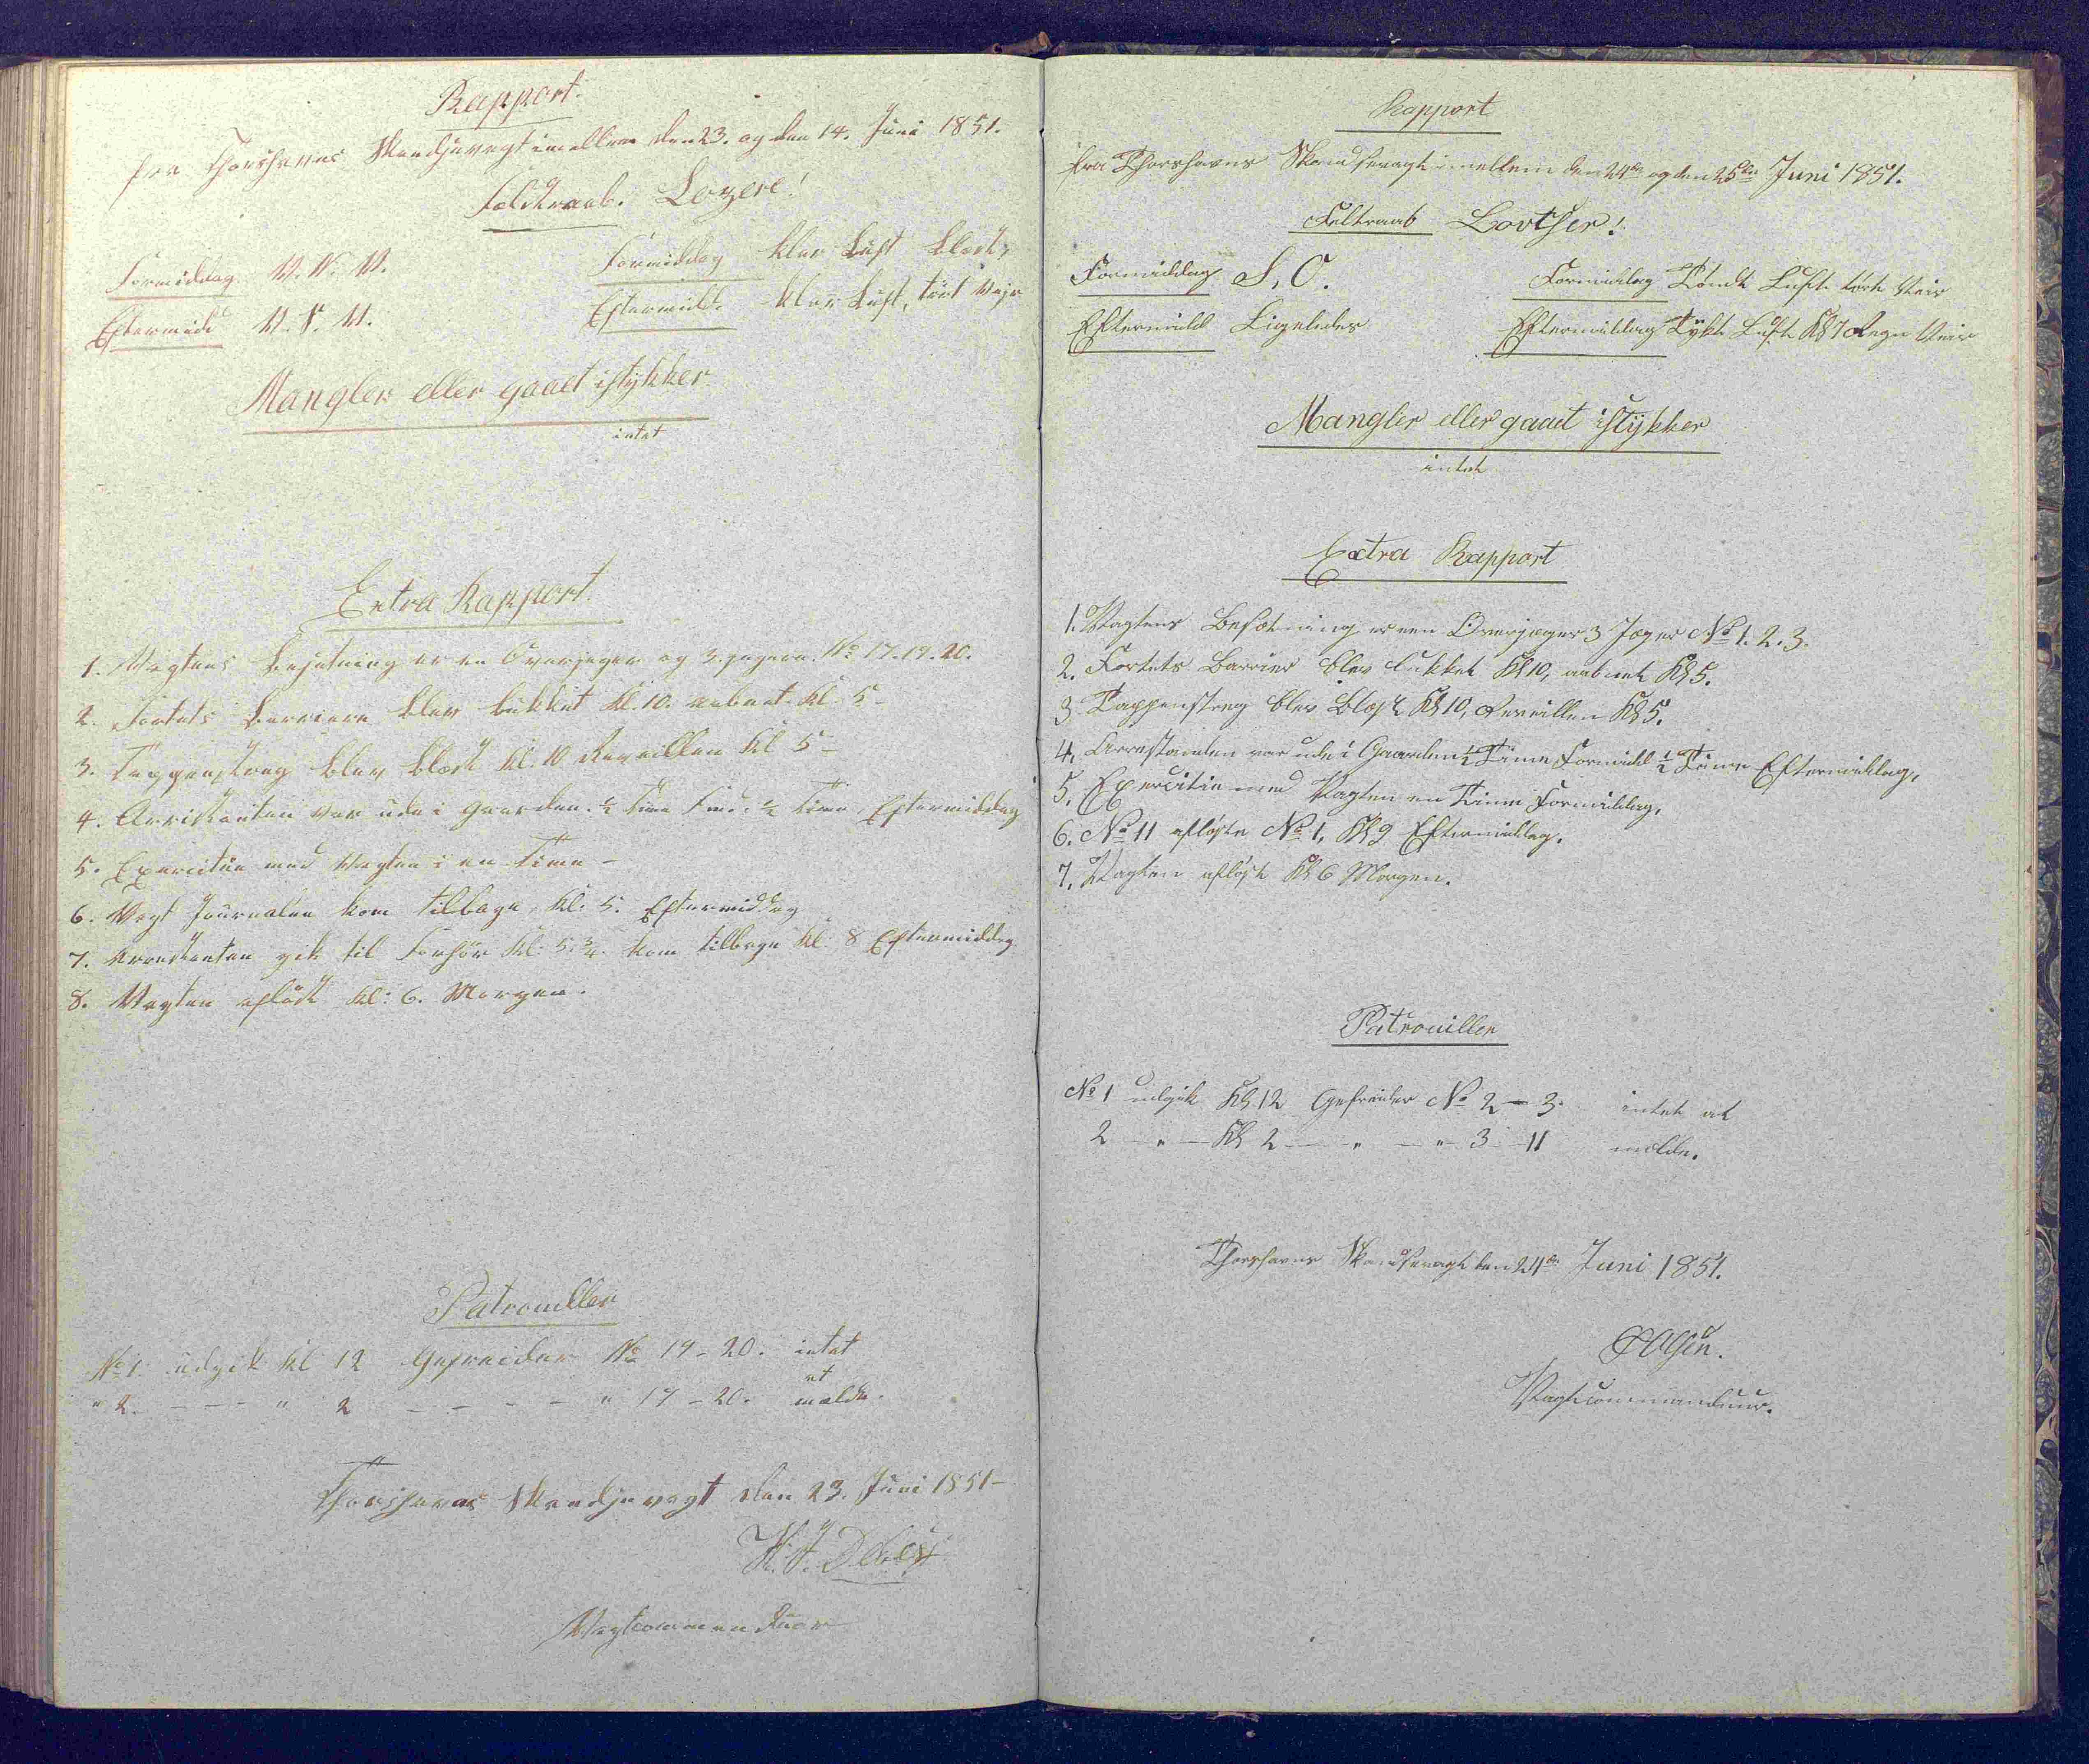 Rapport.
fra Thorshavns Skandsevagt imellem den 23. og den 14. Juni 1851.
Feldtraab. Lozere!
Formiddag V. N. V. Formiddag klar Luft blæst,
Eftermidd V. S. V. Eftermidd. klar Luft, tørt Vejr
Mangler eller gaaet istykker.
intet
Extra Rapport.
1. Vagtens Besætning er en Overjæger og 3. Jægere. No 17. 19. 20.
2. Fortets Barriere blev lukket Kl. 10. aabnet. Kl. 5 -
3. Tappenstreg blev blæst Kl. 10 Reveillen Kl 5 -
4. Arrestanten var ude i Gaarden. ½ Time Fmd. ½ Time Eftermiddag
5. Exercitie med Vagten i en Time -
6. Vagt Journalen kom tilbage, Kl. 5. Eftermiddag
7. Arrestanten gik til Forhør Kl. 5.¾. kom tilbage Kl. 8 Eftermiddag
8. Vagten afløst Kl: 6. Morgen.
Patrouiller
No 1. udgik Kl 12 Gefreider No 19 - 20. intet at
" 2. - - - " 2 - - - - " 17 - 20. melde.
Thorshavns Skandsevagt den 23. Juni 1851 -
Vagtcommanduer
Rapport
fra Thorshavns Skandsevagt imellem den 24de og den 25de Juni 1851.
Feltraab Lovtser!
Formiddag S, O. Formiddag Tøndt Luft tørt Veir
Eftermidd Ligeledes Eftermiddag Tykt Luft Kl 7 Regn Veir
Mangler eller gaaet istykker
intet
Extra Rapport
1. Vagtens Besætning er en Overjæger 3 Jæger No 1. 2. 3.
2. Fortets Barrier blev lukket Kl 10, aabnet Kl 5.
3. Tappenstreg blev blæst Kl 10, Reveillen Kl 5.
4. Arrestanten var ude i Gaarden ½ Time Formidd ½ Time Eftermiddag,
5. Exercitie med Vagten en Time Formiddag,
6. No 11 afløste No 1, Kl 9 Eftermiddag.
7. Vagten afløst Kl 6 Morgen.
Patrouiller
No 1 udgik Kl. 12 Gefreider No 2 - 3. intet at
2 - " - Kl 2 - " - " - 3 - 11 melde.
Thorshavns Skandsevagt den 24de Juni 1851.
Olsen.
Vagtcommandeur.